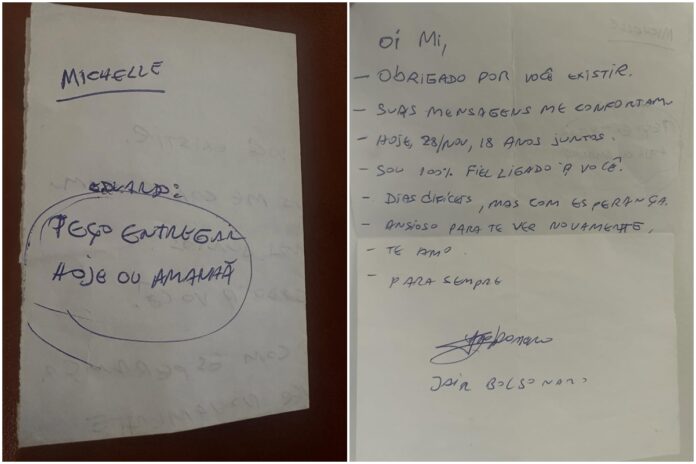 MICHELLE
EDUARDO:
PEÇO ENTREGAR
HOJE OU AMANHÃ
Oi Mi,
- OBRIGADO POR VOCÊ EXISTIR.
- SUAS MENSAGENS ME CONFORTAM
- HOJE, 28/NOV, 18 ANOS JUNTOS.
- SOU 100% FIEL LIGADO À VOCÊ.
- DIAS DIFÍCEIS, MAS COM ESPERANÇA.
- ANSIOSO PARA TE VER NOVAMENTE,
- TE AMO.
- PARA SEMPRE
JAIR BOLSONARO